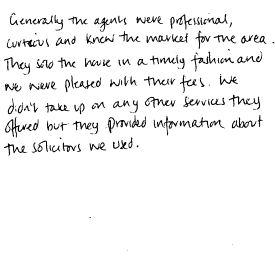 Generally the agents were professional,
curtious and knew the market for the area.
They sold the house in a timely fashion and
we were pleased with their fees. We
didn't take up on any other services they
offered but they provided information about
the solicitors we used.